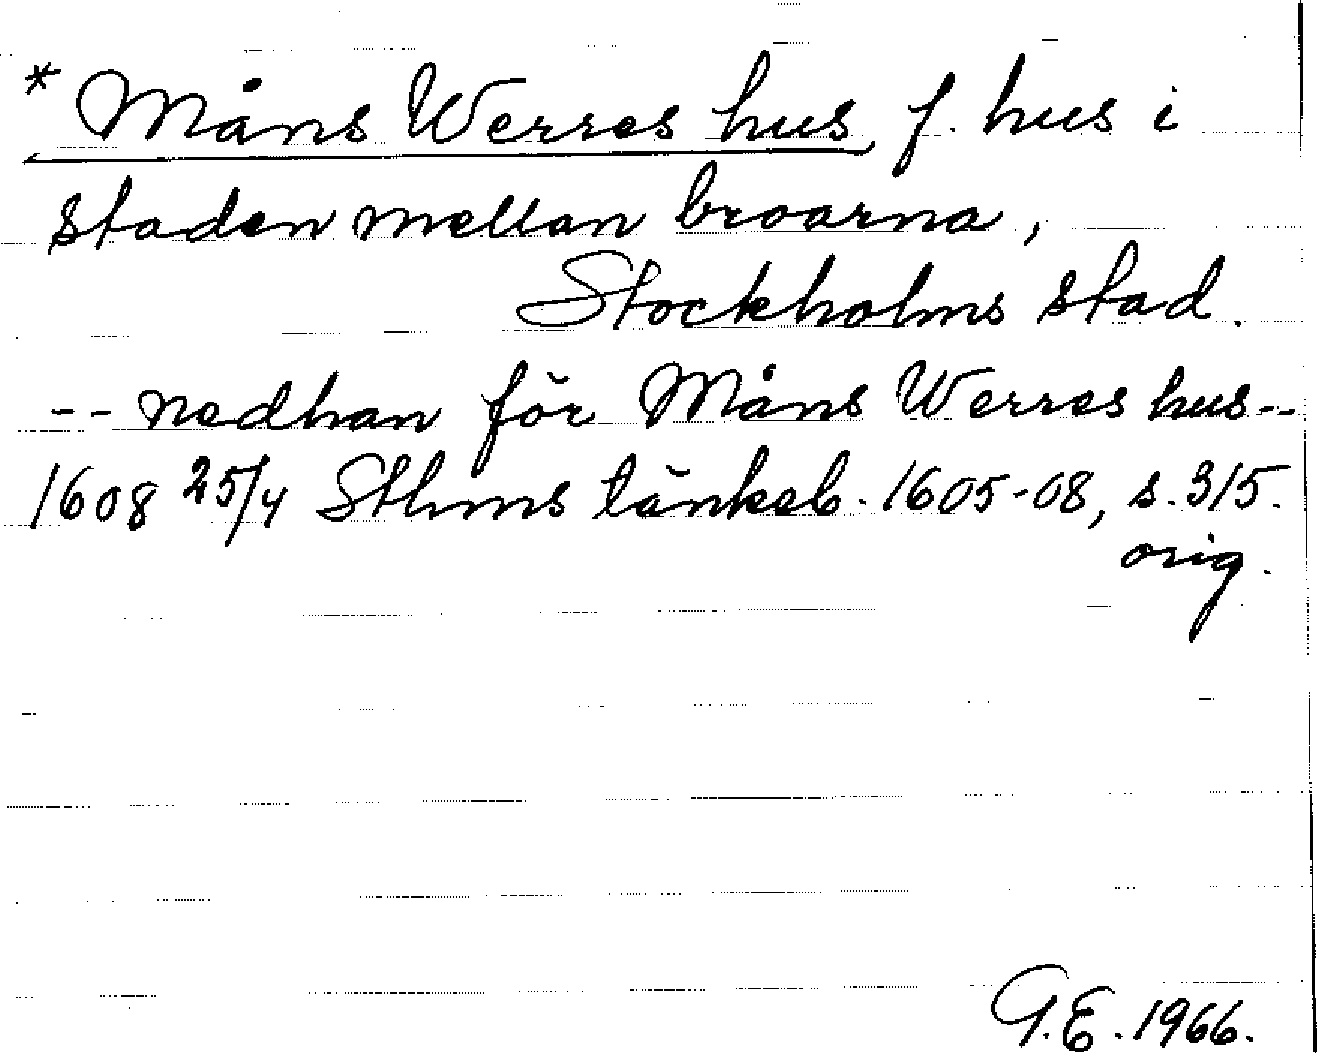 * Måns Werres hus, f. hus i
staden mellan broarna,
Stockholms stad.
-- nedhan för Måns Werres hus--
1608 25/4 Sthms tänkeb. 1605-08, s. 315.
orig.
G.E. 1966.